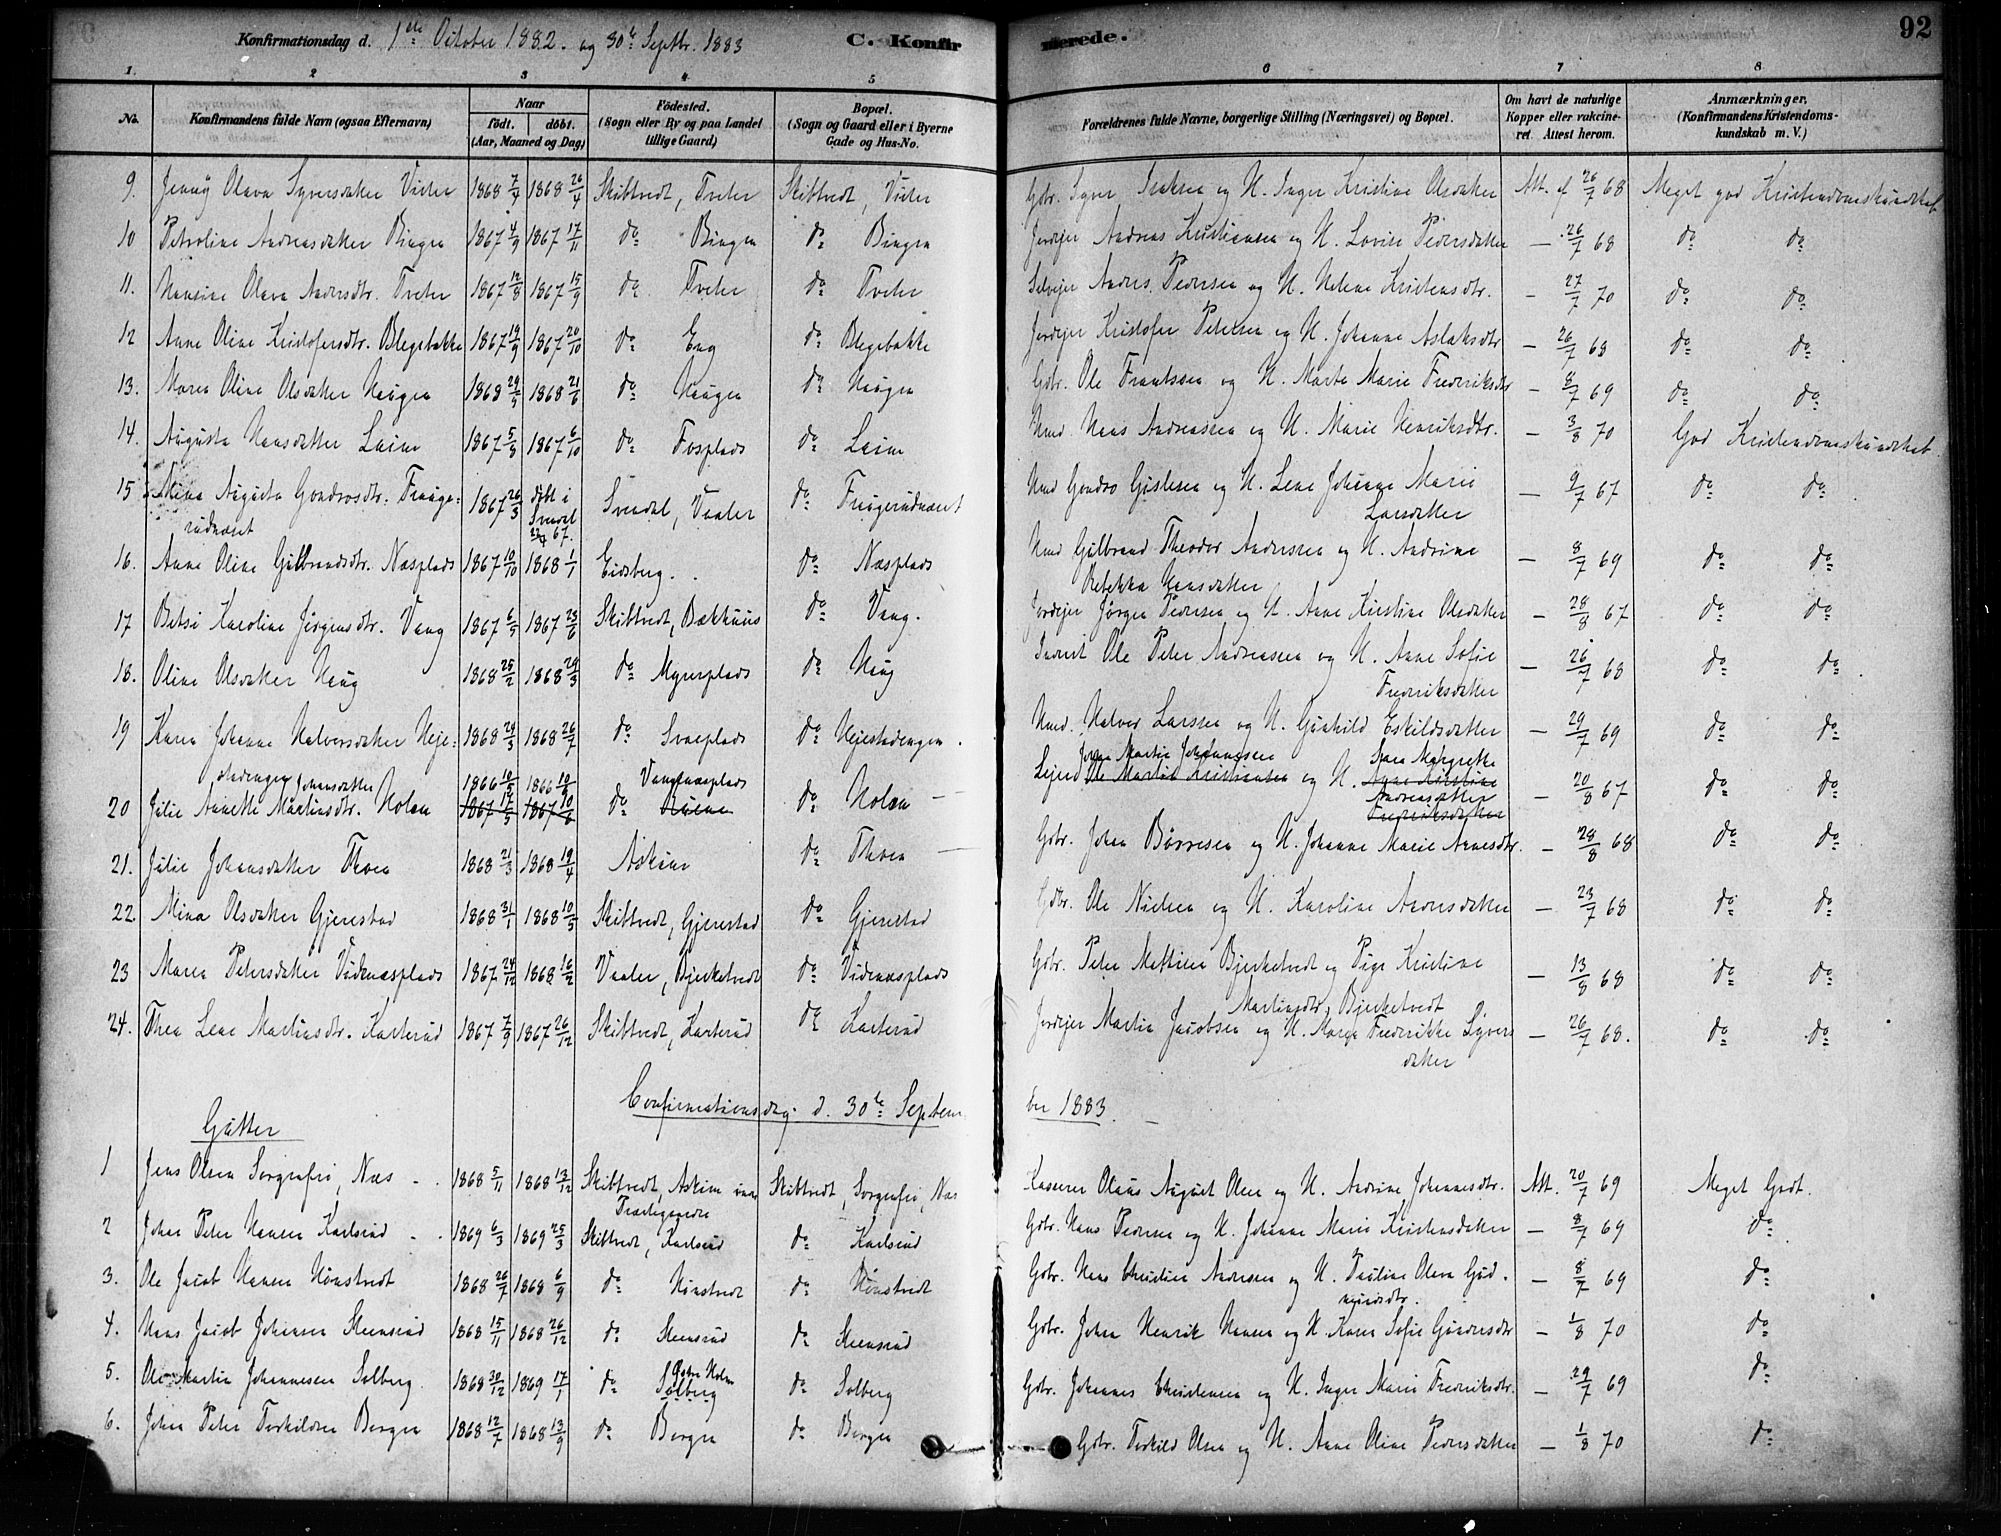 Konfirmationsdag d. 1ste October 1882. og 30te Septbr. 1883 C. Konfirmerede. 92
1. 2 3 4 5 6 7 8
No. Konfirmandens fulde Navn (ogsaa Efternavn) Naar födt. döbt. (Aar, Maaned og Dag) Födested. (Sogn eller By og paa Landet tillige Gaard) Bopæl. (Sogn og Gaard eller i Byerne Gade og Hus-No. Forældrenes fulde Navne, borgerlige Stilling (Næringsvei) og Bopæl. Om havt de naturlige Kopper eller vakcineret. Attest herom. Anmærkninger. (Konfirmandens Kristendomskundskab m. V.)
9. Jenny Olava Syversdatter 1868 7/4 1868 26/4 Skibtvedt, Skibtvedt, Gbr. Syver Isaksen og H. Inger Kristine Olsdatter Att. af 26/7 68 Meget god Kristendomskundskab
10 Petroline Andreasdatter Bingen 1867 4/9 1867 17/11 do Bingen do Bingen Jordejer Andreas Kristiansen og H. Lovise Pedersdatter — 26/7 68 do do
11. Hansine Olava Andersdtr. Tveter 1867 12/8 1867 15/9 do Tveter do Tveter Selvejer Anders Pedersen og H. Helene Kristensdtr. — 27/7 70 do do
12 Anne Oline Kristofersdtr. Blegebakke 1867 19/9 1867 20/10 do Eng do Blegebakke Jordejer Kristofer Petersen og H. Johanne Aslaksdtr — 26/7 68 do do
13. Maren Oline Olsdatter Haugen 1868 1868 21/6 do Haugen do Haugen Gbr. Ole Frantssen og H. Marte Marie Fredriksdtr — 8/7 69 do do
14. Augusta Hansdatter 1867 1867 6/10 do Fosplads do Hmd. Hans Andreassen og H. Marie Henriksdtr. — 3/8 70 God Kristendomskundskab.
15 Mina Augusta Gondrosdtr. 1867 26/3 döbt i Svindal 22/4 67. Svindal, Vaaler do Hmd Gondro Gislesen og H. Lene Johanne Marie — 9/7 67 do do
Larsdatter
16. Anne Oline Gulbrandsdtr. Næsplads 1867 10/10 1868 1/1 Eidsberg. do Næsplads Hmd Gulbrand Theodor Andersen og H. Andrine — 8/7 69 do do
Rebekka Hansdatter
17 Betsi Karoline Jörgensdtr. Vang 1867 6/5 1867 23/6 Skibtvedt, Bækhuus do Vang. Jordejer Jörgen Pedersen og H. Anne Kristine Olsdatter — 28/8 67 do do
18. Oline Olsdatter Haug 1868 25/2 1868 29/3 do Myrerplads do Haug Ole Peter Andreassen og H. Anne Sofie — 26/7 68 do do
Fredriksdatter
19 Karen Johanne Halversdatter Hejestadengen 1868 24/5 1868 26/7 do do Hejestadengen. Hmd. Halvor Larssen og H. Gunhild Eskildsdatter — 29/7 69 do do
20 Julie Annette Johansdatter Martinsdtr. Holen 1866 1866 1867 1867 do do Holen Johan Martin Johannesen Ole Martin Kristiansen og H. Sara Margrethe Andreasdatter Anne Kristine Fredriksdatter — 20/8 67 do do
21. Julie Johansdatter Thoen 1868 21/3 1868 19/4 Askim do Thoen Gbr. Johan Börresen og H. Johanne Marie — 28/8 68 do do
22. Mina Olsdatter Gjerestad 1868 31/1 1868 10/5 Skibtvedt, Gjerestad do Gjerestad Gbr. Ole Nielsen og H. Karoline Andersdatter — 23/7 68 do do
23 Maren Petersdatter Vidnæsplads 1867 24/12 1868 16/2 Vaaler, Bjerketvedt do Vidnæsplads Gbr. Peter Mathisen Bjerketvedt og Pige Kristine — 13/8 68 do do
Martinsdtr. Bjerketvedt
24. Thea Lene Martinsdtr. Karterud 1867 7/9 1867 26/12 Skibtvedt, Karterud do Karterud Jordejer Martin Jacobsen og H. Maren Fredrikke Syvers — 26/7 68. do do
datter
Confirmationsdag d. 30te September 1883.
Gutter
1 Jens Olsen Sorgenfri, Næs 1868 5/11 1868 13/12 Skibtvedt, Askim Skibtvedt, Sorgenfri, Næs Olaus August Olsen og H. Andrine Johannesdtr. Att. 20/7 69 Meget Godt.
2 Johan Peter Hansen Karlsrud 1869 6/3 1869 25/3 Skibtvedt, Karlsrud do Karlsrud Gbr. Hans Pedersen og H. Johanne Marie Kristensdatter — 8/7 69 do
3. Ole Jacob Hansen Hönstvedt 1868 26/7 1868 6/9 do Hönstvedt do Hönstvedt Gbr. Hans Christian Andersen og H. Pauline Olava Gud- — 8/7 69 do
mundsdtr.
4. Hans Jacob Johansen Steensrud 1868 15/11 1868 26/12 do Steensrud do Steensrud Gbr. Johan Henrik Hansen og H. Karen Sofie — 1/8 70 do
5. Ole Martin Johannesen Solberg. 1868 30/12 1869 17/1 do Solberg do Solberg Gbr. Johannes Christensen og H. Inger Marie Fredriksdtr. — 29/7 69 do
6. Johan Peter Torkildsen Bergen 1868 12/7 1868 13/9 do Bergen do Bergen Gbr. Torkild Olsen og H. Anne Oline Pedersdatter — 1/8 70 do